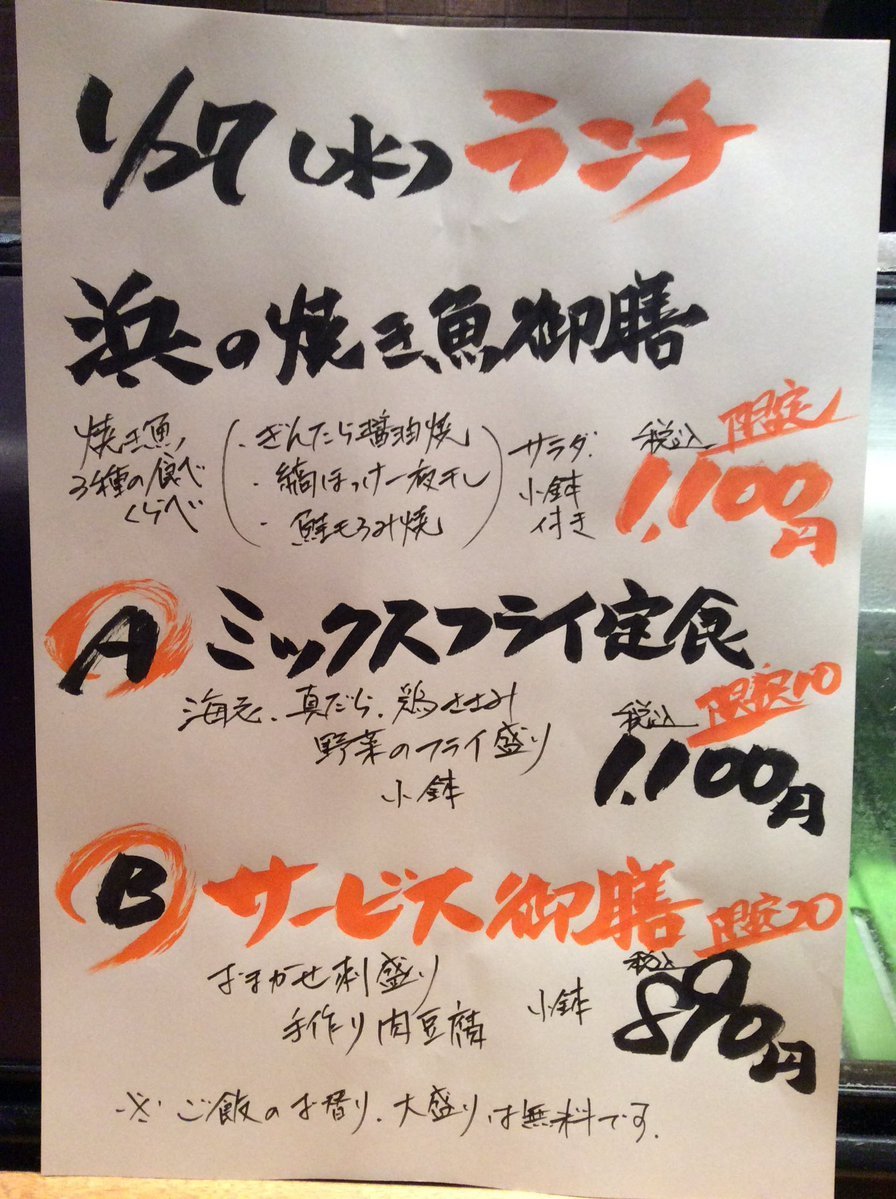 1/27(水)ランチ
浜の焼き魚御膳
焼き魚
3種の食べ
くらべ
・ぎんだら醤油焼
・縞ほっけ一夜干し
・鮭もろみ焼
サラダ、
小鉢
付き
限定
税込
1,100円
A ミックスフライ定食
海老、真だら、鶏ささみ
野菜のフライ盛り
小鉢
限定10
税込
1,100円
B サービス御膳
限定20
おまかせ刺盛り
手作り肉豆腐
小鉢
税込
890円
※ご飯のお替り、大盛りは無料です。